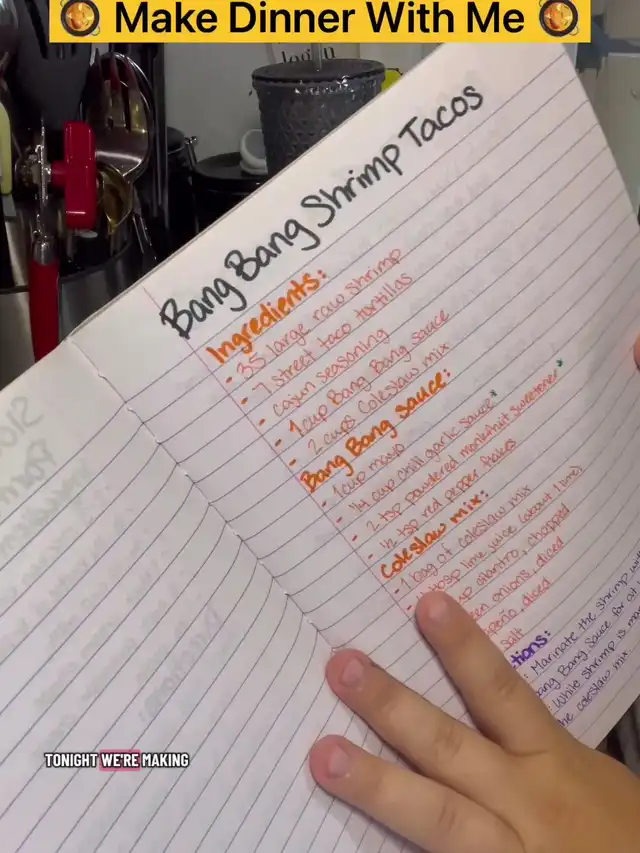 Make Dinner With Me
Bang Bang Shrimp Tacos
Ingredients:
- 35 large raw shrimp
- 7 street taco tortillas
- cajun seasoning
- 1 cup Bang Bang sauce
- 2 cups coleslaw mix
Bang Bang Sauce:
- 1 cup mayo
- 1/4 cup chili garlic sauce*
- 2 tsp powdered monkfruit sweetener*
- 1/2 tsp red pepper flakes
Coleslaw mix:
- 1 bag of coleslaw mix
tbsp lime juice (about 1 lime)
cilantro, chopped
onions, diced
diced
salt
tions:
Marinate the shrimp
Bang Bang Sauce for at
While shrimp is
the coleslaw mix
TONIGHT WE'RE MAKING